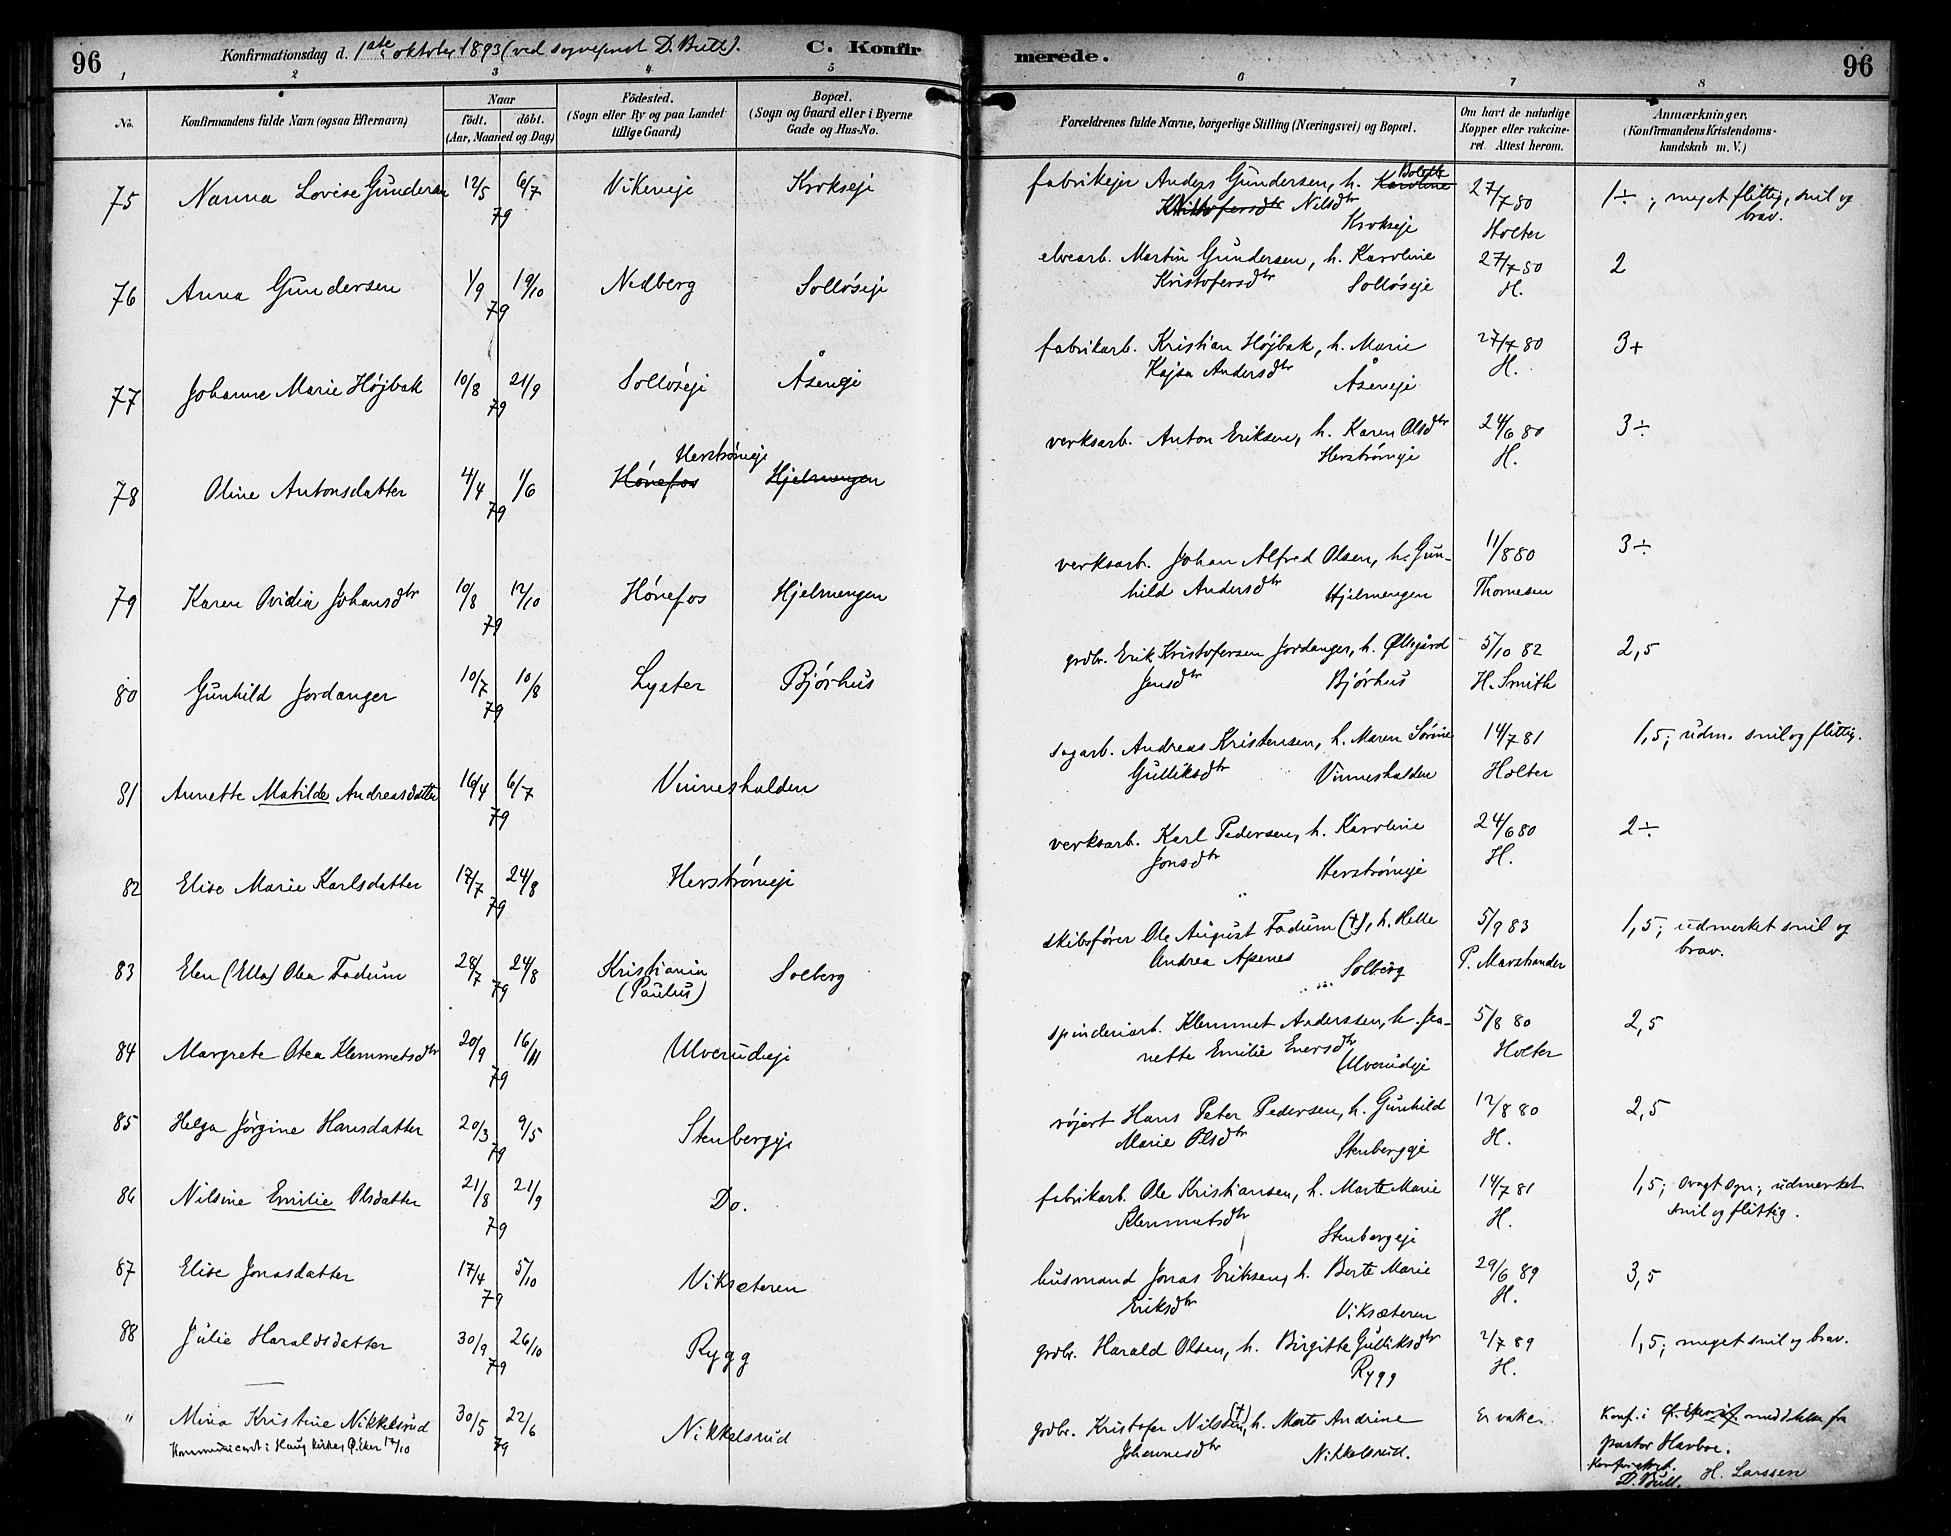 96
Konfirmationsdag d. 1ste oktober 1893 (ved sogneprest D. Bull).
C. Konfirmerede.
96
1 2 3 4 5 6 7 8
No.
Konfirmandens fulde Navn (ogsaa Efternavn)
Naar
födt. döbt.
(Aar, Maaned og Dag)
Födested.
(Sogn eller By og paa Landet
tillige Gaard)
Bopæl.
(Sogn og Gaard eller i Byerne
Gade og Hus-No.
Forældrenes fulde Navne, borgerlige Stilling (Næringsvei) og Bopæl.
Om havt de naturlige
Kopper eller vakcine-
ret. Attest herom.
Anmærkninger.
(Konfirmandens Kristendoms-
kundskab m. V.)
75 Nanna Lovise Gundersen 12/5 6/7 79 Vikeneje Krokseje
fabrikejer Anders Gundersen, h. Karoline Bolette
Kristofersdtr Nilsdtr Krokseje
27/7 80 Holter
1÷; meget flittig, snil og
brav.
76 Anna Gundersen 1/9 19/10 79 Nedberg Solløseje
elvearb. Martin Gundersen, h. Karoline
Kristofersdtr Solløseje
27/7 80 H.
2
77 Johanne Marie Højbak 10/8 21/9 79 Solløseje Åseneje
fabrikarb. Kristian Højbak, h. Marie
Kajsa Andersdtr Åseneje
27/7 80 H.
3+
78 Oline Antonsdatter 4/4 1/6 79 Herstrømeje
Hønefos Hjelmengen
verksarb. Anton Eriksen, h. Karen Olsdtr
Herstrømeje
24/6 80 H.
3÷
79 Karen Ovidia Johansdtr 10/8 12/10 79 Hønefos Hjelmengen
verksarb. Johan Alfred Olsen, h. Gun-
hild Andersdtr Hjelmengen
11/8 80 Thomesen
3÷
80 Gunhild Jordanger 10/7 10/8 79 Lyster Bjørhus
grdbr. Erik Kristofersen Jordanger, h. Øllegård
Jensdtr Bjørhus
5/10 82 H. Smith
2,5
81 Annette Matilde Andreasdatter 16/4 6/7 79 Vinneshalden
sagarb. Andreas Kristensen, h. Maren Sørine
Gulliksdtr Vinneshalden
14/7 81 Holter
1,5; udm. snil og flittig.
82 Elise Marie Karlsdatter 17/7 24/8 79 Herstrømeje
verksarb. Karl Pedersen, h. Karoline
Jonsdtr Herstrømeje
24/6 80 H.
2÷
83 Elen (Ella) Olea Fadum 28/7 24/8 79 Kristiania
(Paulus) Solberg
skibsfører Ole August Fadum (†), h. Helle
Andrea Apenes Solberg
5/9 83 P. Marstrander
1,5; udmerket snil og
brav.
84 Margrete Otea Klemmetsdtr 20/9 16/11 79 Ulverudeje
spinderiarb. Klemmet Anderssen, h. Jea-
nette Emilie Enersdtr Ulverudeje
5/8 80 Holter
2,5
85 Helga Jørgine Hansdatter 20/3 9/5 79 Stenbergeje
røjert Hans Peter Pedersen, h. Gunhild
Marie Olsdtr Stenbergeje
12/8 80 H.
2,5
86 Nilsine Emilie Olsdatter 21/8 21/9 79 Do.
fabrikarb. Ole Kristiansen, h. Marte Marie
Klemmetsdtr Stenbergeje
14/7 81 H.
1,5; svagt syn; udmerket
snil og flittig.
87 Elise Jonasdatter 17/4 5/10 79 Viksæteren
husmand Jonas Eriksen, h. Berte Marie
Eriksdtr Viksæteren
29/6 89 H.
3,5
88 Julie Haraldsdatter 30/9 26/10 79 Rygg
grdbr. Harald Olsen, h. Birgitte Gulliksdtr
Rygg
2/7 89 H.
1,5; meget snil og brav.
" Mina Kristine Nikkelsrud 30/5 22/6 79 Nikkelsrud
Kommuniceret i Haug kirke, Ø. Eker 17/10
grdbr. Kristofer Nilsen (†), h. Marte Andrine
Johannesdtr Nikkelsrud.
Er vakc.
Konf. i meddelelse fra
pastor Havboe.
D. Bull. H. Larssen